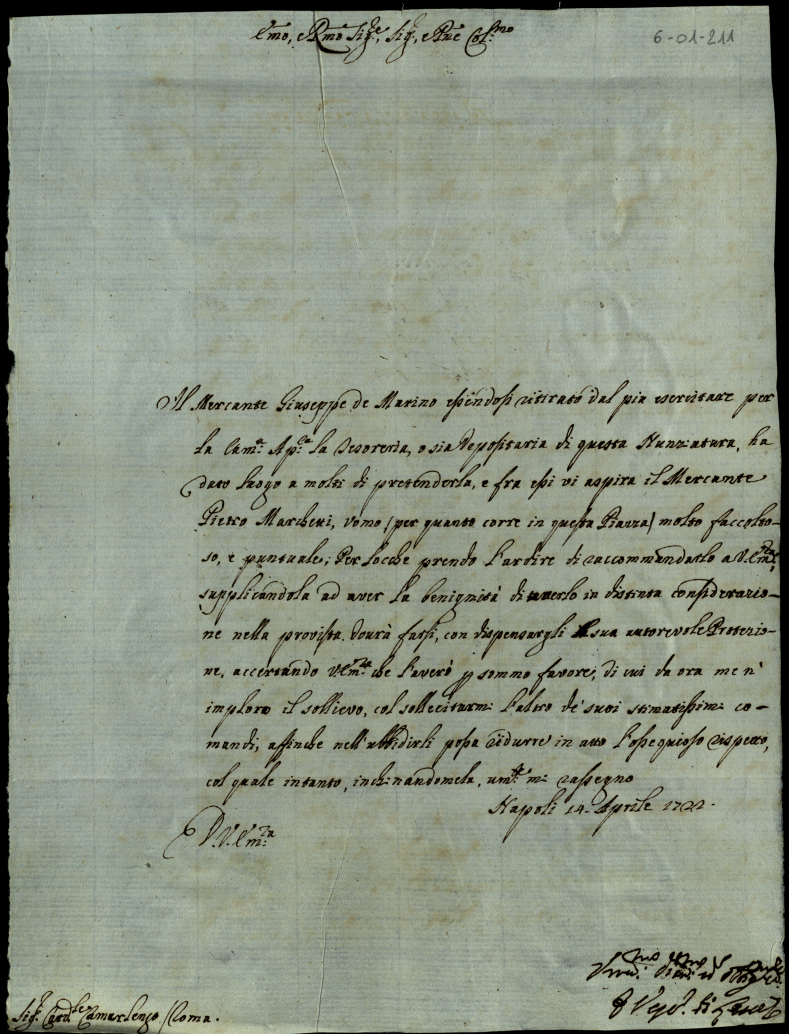 Emo, e Rmo Sig.re, Sig.r, e Pne Col.mo
6-01-211
Il Mercante Giuseppe de Marino essendosi ritirato dal più esercitare per
la Cam.a Ap.ca la Tesoreria, o sia Depositaria di questa Nunziatura, ha
dato luogo a molti di pretenderla, e fra essi vi aspira il Mercante
Pietro Marchetti, uomo (per quanto corre in questa Piazza) molto faccolto-
so, e puntuale; Per locche prendo l'ardire di raccommandarlo a V. Em.za,
supplicandola ad aver la benignità di averlo in distinta considerazio-
ne nella provista dourà farsi, con dispensargli la sua autorevole Protezio-
ne, accertando V. Em.za che l'averò p sommo favore, di cui da ora me n'
imploro il sollievo, col sollecitarmi l'altro de' suoi stimatissimi co-
mandi, affinche nell'ubbidirli possa ridurre in atto l'ossequioso rispetto,
col quale intanto, inchinandomela, um.te mi rassegno
Napoli 14 Aprile 1722.
D. V. Em.za
Sig.r Card.le Camarlengo / Roma.